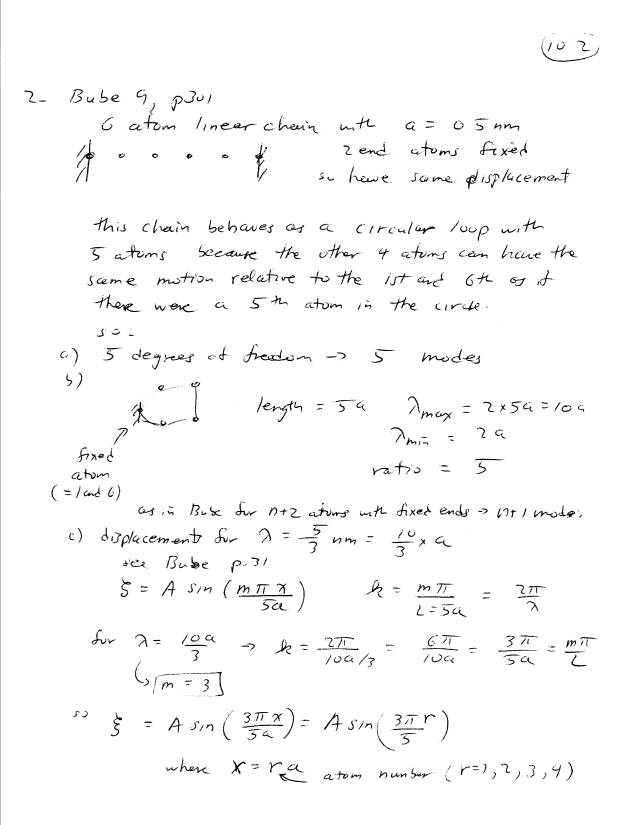 10 2
2- Bube 9, p301
6 atom linear chain with a = 0 5 nm
2 end atoms fixed
so have same displacement
this chain behaves as a circular loop with
5 atoms because the other 4 atoms can have the
same motion relative to the 1st and 6th as if
there were a 5th atom in the circle.
so:
a) 5 degrees of freedom → 5 modes
b)
length = 5a λmax = 2×5a = 10a
λmin = 2a
fixed
atom
(= 1 and 6)
ratio = 5
as in Bube for n+2 atoms with fixed ends → n+1 mode.
c) displacements for λ = 5/3 nm = 10/3 × a
see Bube p.31
ξ = A sin (mπx/5a) k = mπ/L=5a = 2π/λ
for λ = 10a/3 → k = 2π/10a/3 = 6π/10a = 3π/5a = mπ/L
↳ m = 3
so ξ = A sin (3πx/5a) = A sin (3π/5 r)
where x = ra atom number (r=1, 2, 3, 4)